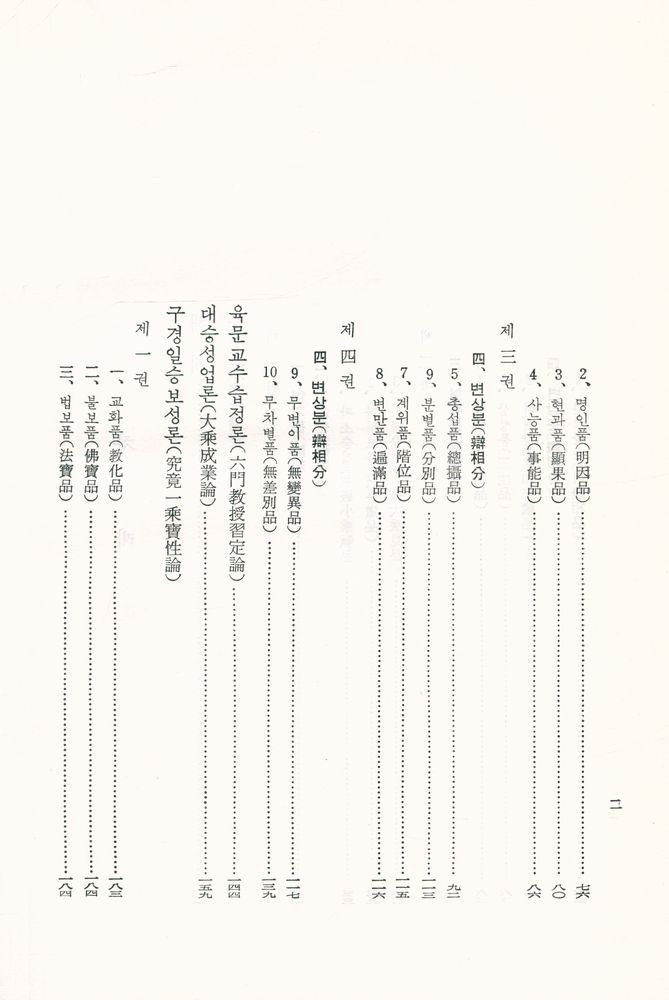 二
2、명인품(明因品)……七六
3、현과품(顯果品)……八〇
4、사능품(事能品)……八六
제 三 권
四、변상분(辯相分)
5、총섭품(總攝品)……九二
9、분별품(分別品)……一一三
7、계위품(階位品)……一一五
8、변만품(遍滿品)……一一六
제 四 권
四、변상분(辯相分)
9、무변이품(無變異品)……一一七
10、무차별품(無差別品)……一三九
육문교수습정론(六門教授習定論)……一四四
대승성업론(大乘成業論)……一五九
구경일승보성론(究竟一乘寶性論)
제 一 권
一、교화품(教化品)……一八三
二、불보품(佛寶品)……一八四
三、법보품(法寶品)……一八四